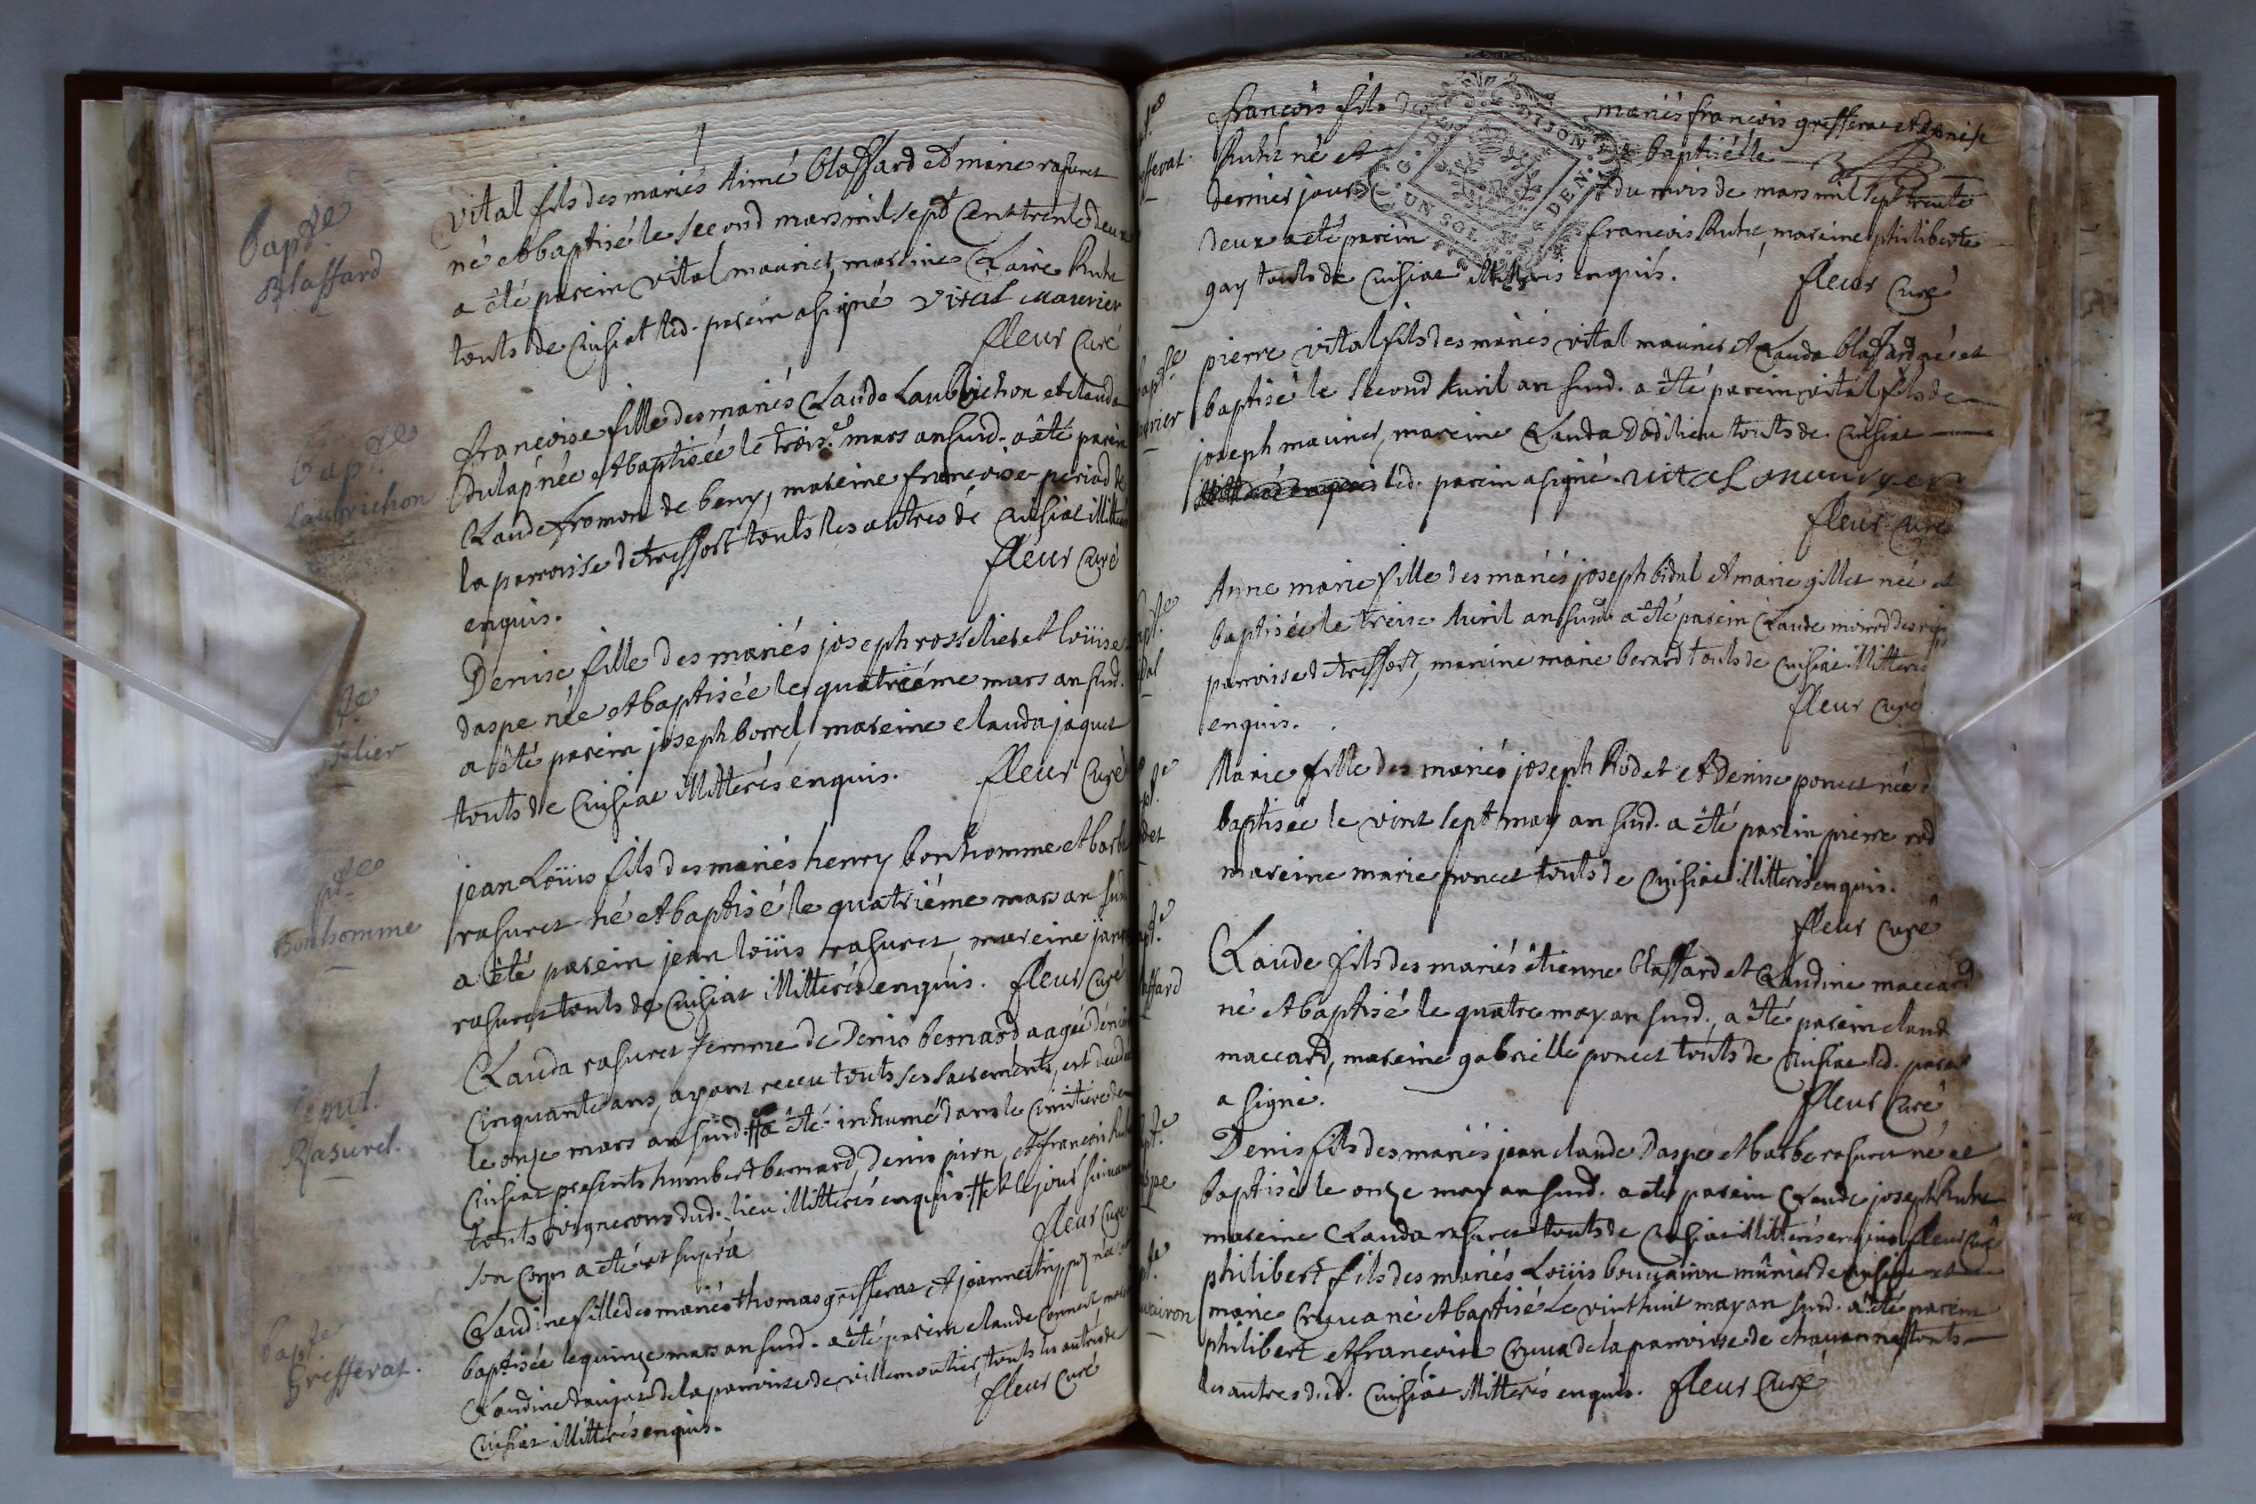 Bap.te
Blaffard
vital fils des mariés Aimé blaffard et marie rasurel
né et baptisé le second mars mil sept cent trente deux
a été parein vital maurier, mareine Claire Ruhe
touts de Cuisiat led. parein a signé vital maurier
fleur Curé
Bap.te
Laubrichon
francoise fille des mariés Claude Laubrichon et clauda
Dulap née et baptisée le trois.e mars an susd. a été parein
Claude fromon de beny, mareine francoise periad de
la parroisse de treffort touts les autres de Cuisiat illitterés
fleur Curé
enquis.
te
selier
Denise fille des mariés joseph rosselier et loüise
daspe née et baptisée le quatriéme mars an susd.
a été parein joseph borrel, mareine clauda jaquet
touts de Cuisiat illitterés enquis. fleur Curé
pte
Bonhomme
jean Loüis fils des mariés henry bonhomme et barbe
rasurel né et baptisé le quatriéme mars an susd
a été parein jean loüis rasurel, mareine
rasurel touts de Cuisiat illitterés enquis. fleur Curé
sepul.
Rasurel.
Clauda rasurel femme de Denis bernard aagée denviron
Cinquante ans, ayant receu touts ses sacrements, est decedée
le onze mars an susd. # a été inhumé dans le Cimitiere de
Cuisiat presents humbert bernard, denis piron, et francois Ruhe
touts vignerons dud. lieu illitterés enquis. # et le jour suivant
fleur Curé
son Corps a été ut supra
Bapt.e
Grefferat.
Claudine fille des mariés thomas grefferat et jeanne trippoz née et
baptisée le quinze mars an susd. a été parein claude Convert mareine
Claudine daujat de la parroisse de villemoutier, touts les autres de
fleur Curé
Cuisiat illitterés enquis.
fferat.
francois fils des mariés francois grefferat et denise
Ruhe né et baptisé le
dernier jour du mois de mars mil sept trente
deux a été parein francois Ruhe, mareine philiberte
gay touts de Cuisiat illitterés enquis. fleur Curé
apte
urier
pierre vital fils des mariés vital maurier et Clauda blaffard né et
baptisé le second Avril an susd. a été parein vital fils de
joseph maurier, mareine Clauda Dodilieu touts de Cuisiat
led. parein a signé. vital mauryer
fleur Curé
apt.e
dal
Anne marie fille des mariés joseph bidal et marie gillet née et
baptisée le treize Avril an susd. a été parein Claude moirod des
parroisse de treffort, mareine marie berard touts de Cuisiat illitterés
fleur Curé
enquis.
pt.e
det
Marie fille des mariés joseph Rodet et Denise poncet née et
baptisée le vint sept may an susd. a été parein pierre rod
mareine marie poncet touts de Cuisiat illitterés enquis.
fleur Curé
apt.e
affard
Claude fils des mariés étienne blaffard et Claudine maccard
né et baptisé le quatre may an susd., a été parein claud
maccard, mareine gabrielle poncet touts de Cuisiat led. parein
a signé. fleur Curé
pt.e
spe
Denis fils des mariés jean claude Daspe et barbe rasurel né et
baptisé le onze may an susd. a été parein Claude joseph Ruhe
mareine Clauda rasurel touts de Cuisiat illitterés enquis fleur Curé
pt.e
vairon
philibert fils des mariés Loüis bouvairon mûnier de Cuisiat et
marie Cruva né et baptisé le vint huit may an susd. a été parein
philibert et francoise Cruva de la parroisse de chavannes touts
les autres dud. Cuisiat illitterés enquis. fleur Curé
G. DE DIJON
UN SOL
DEN.